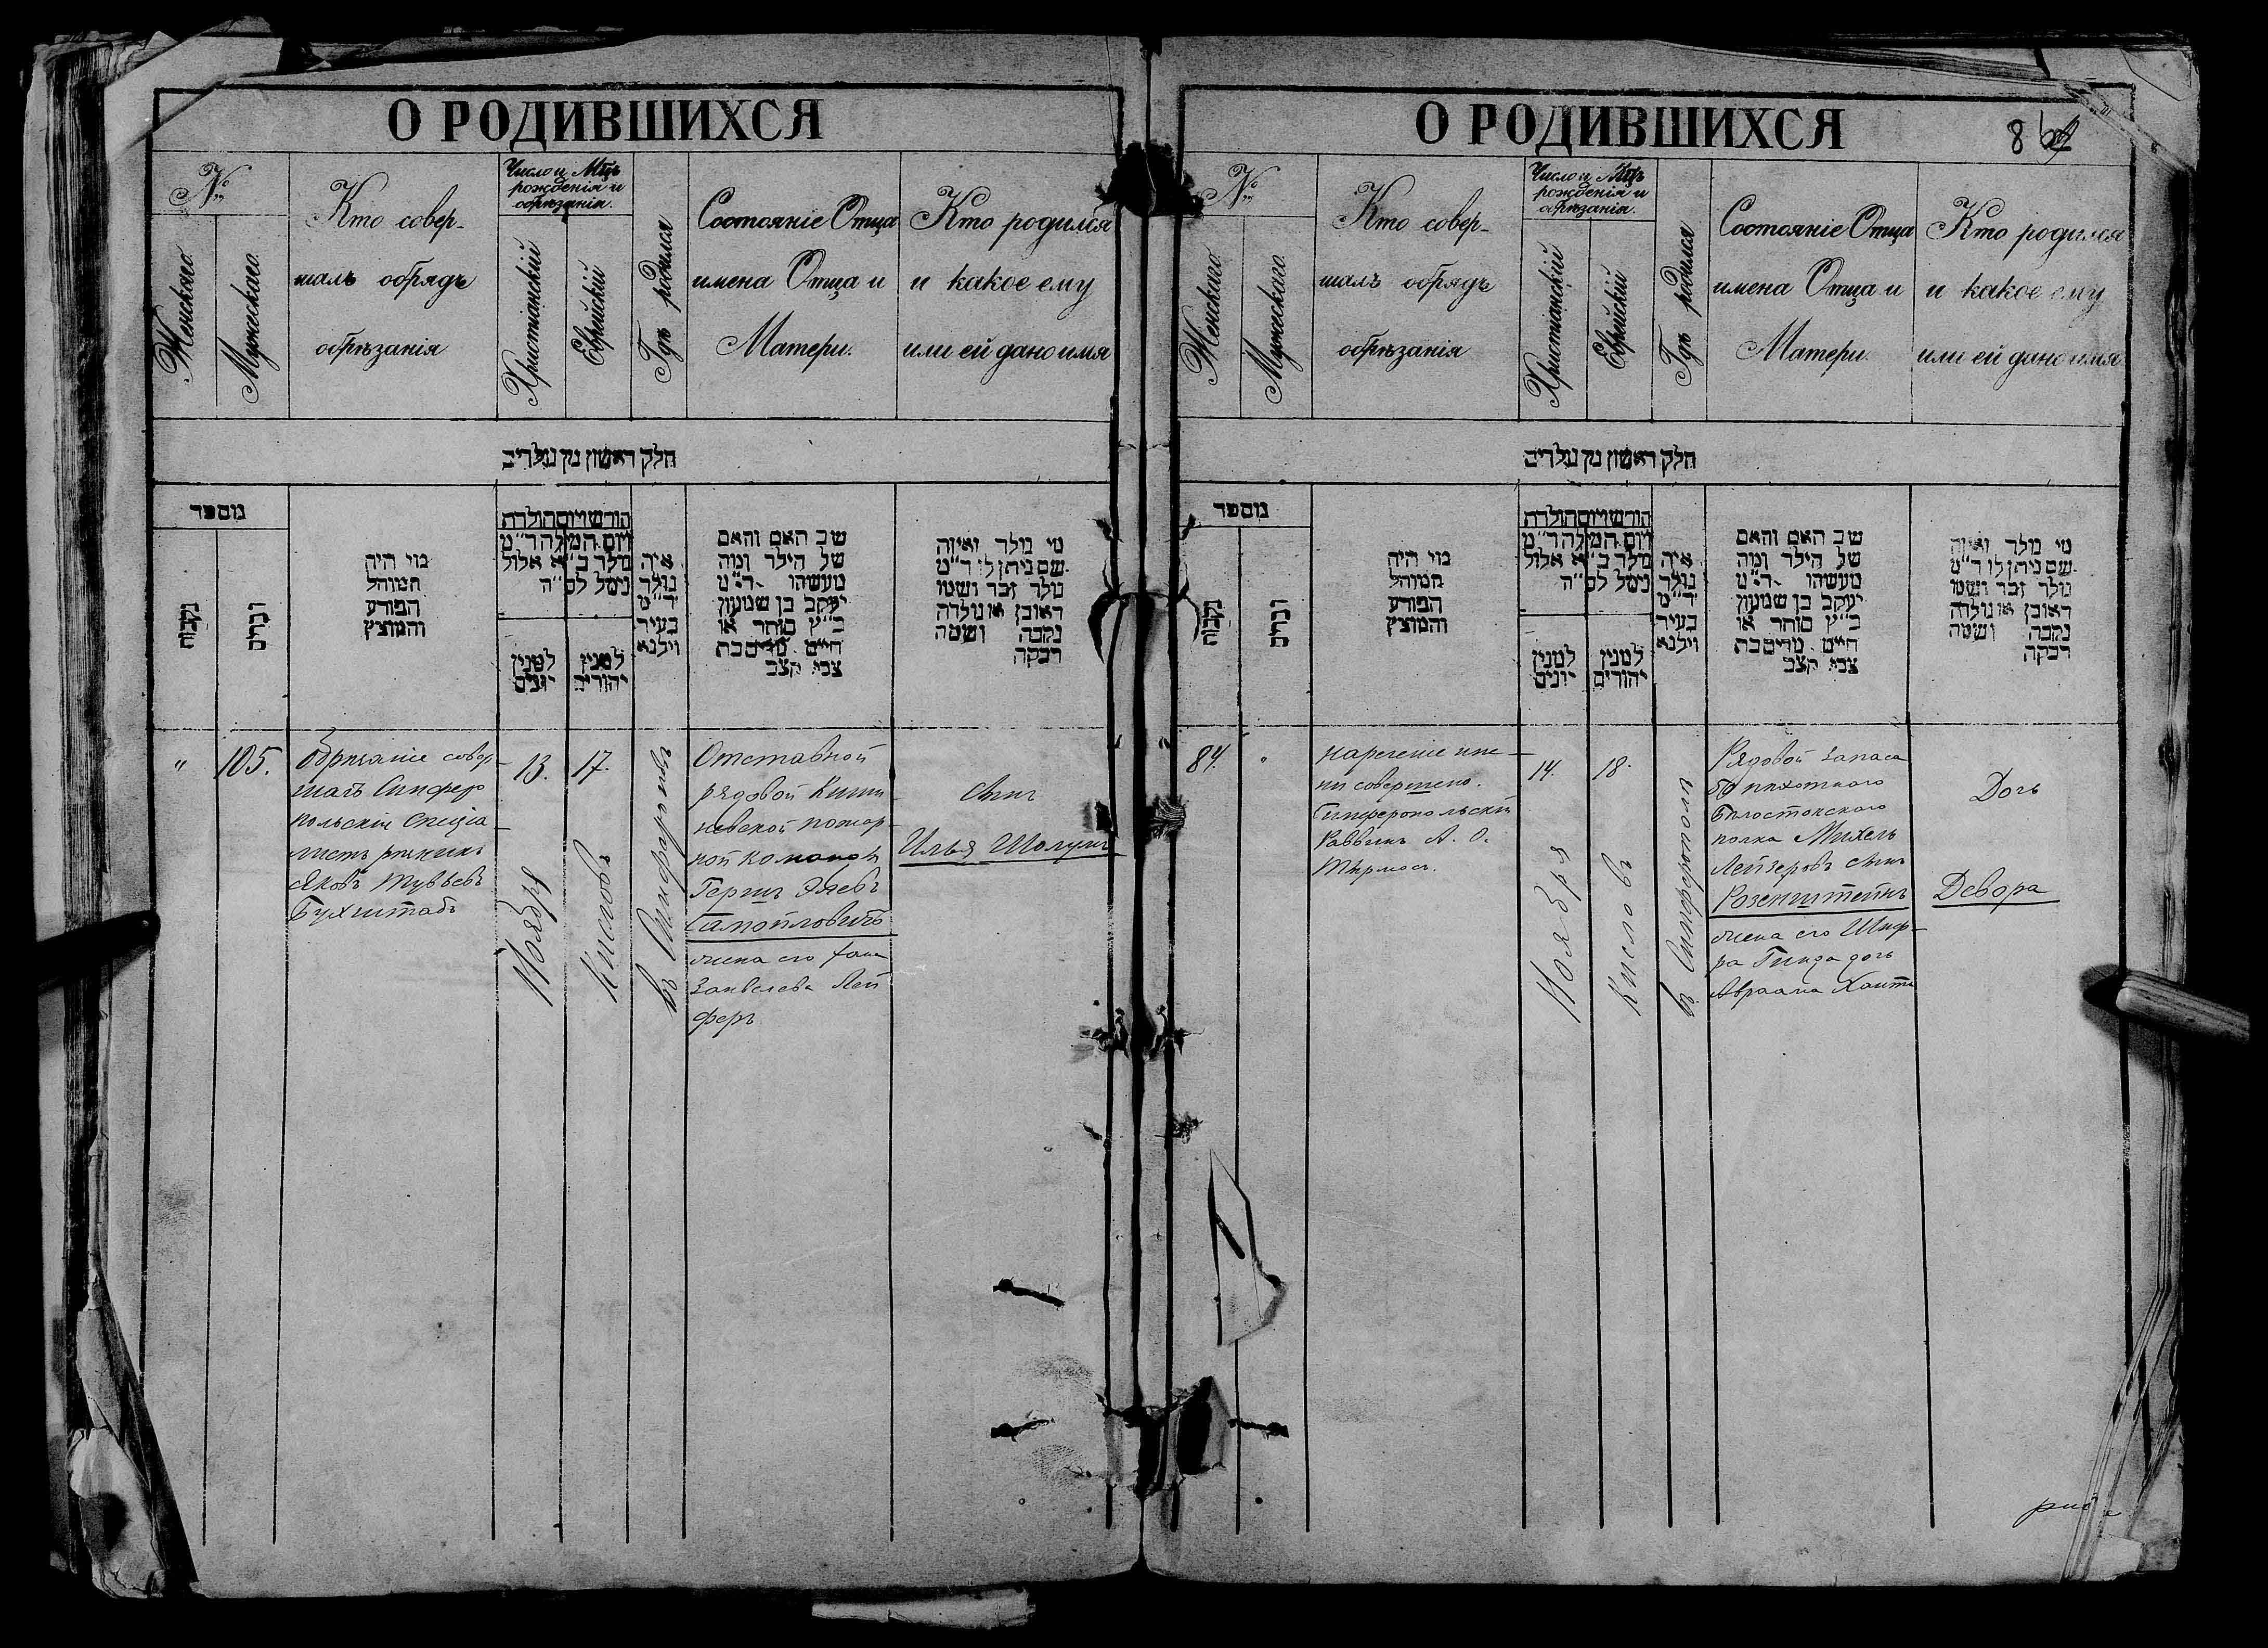 О РОДИВШИХСЯ
№
Женскаго.
Мужескаго.
Кто совер-
шалъ обрядъ
обрѣзанія
Число и Мцъ
рожденія и
обрѣзанія.
Христіанскій
Еврейскій
Гдѣ родился
Состояніе Отца
имена Отца и
Матери.
Кто родился
и какое ему
или ей дано имя
חלק ראשון מן נולדים
מספר
נקבות
זכרים
מי היה
המוהל
הפורע
והמוצץ
חודש ויום הולדת
ויום המילה ד"מ
נולד ב"א אלול
נימל לס"ה
למנין
יונים
למנין
יהודים
איה
נולד
ד"מ
בעיר
וילנא
שם האם והאם
של הילד ומה
מעשהו ד"מ
יעקב בן שמעון
כ"ץ סוחר או
חיים מרים בת
צבי קצב
מי נולד ואיזה
שם ניתן לו ד"מ
נולד זכר ושמו
ראובן או נולדה
נקבה ושמה
רבקה
"
105.
Обрѣзаніе совер-
шалъ Симферо
польскій Спеціа-
листъ рѣзникъ
Яковъ Тувьевъ
Бухштабъ
13.
Ноября
17.
Кислевъ
въ Симферополѣ
Отставной
рядовой Киши-
невской пожар-
ной команды
Герш Элевъ
Самойловичъ
жена его Хана
Занвелева Лей
феръ
Сынъ
Илья Шолумъ
О РОДИВШИХСЯ
8
№
Женскаго
Мужескаго.
Кто совер-
шалъ обрядъ
обрѣзанія
Число и Мцъ
рожденія и
обрѣзанія.
Христіанскій
Еврейскій
Гдѣ родился
Состояніе Отца
имена Отца и
Матери.
Кто родился
и какое ему
или ей дано имя
חלק ראשון מן נולדים
מספר
נקבות
זכרים
מי היה
המוהל
הפורע
והמוצץ
חודש ויום הולדת
ויום המילה ד"מ
נולד ב"א אלול
נימל לס"ה
למנין
יונים
למנין
יהודים
איה
נולד
ד"מ
בעיר
וילנא
שם האם והאם
של הילד ומה
מעשהו ד"מ
יעקב בן שמעון
כ"ץ סוחר או
חיים מרים בת
צבי קצב
מי נולד ואיזה
שם ניתן לו ד"מ
נולד זכר ושמו
ראובן או נולדה
נקבה ושמה
רבקה
84.
"
Нареченіе име-
ни совершено.
Симферопольскій
Раввинъ А. О.
14.
Ноября
18.
Кислевъ
въ Симферополѣ
Рядовой запаса
пѣхотнаго
Бѣлостокскаго
полка Михель
Лейзеровъ сынъ
Розенштейнъ
жена его Шиф-
ра Гинда дочь
Авраама
Дочь
Девора